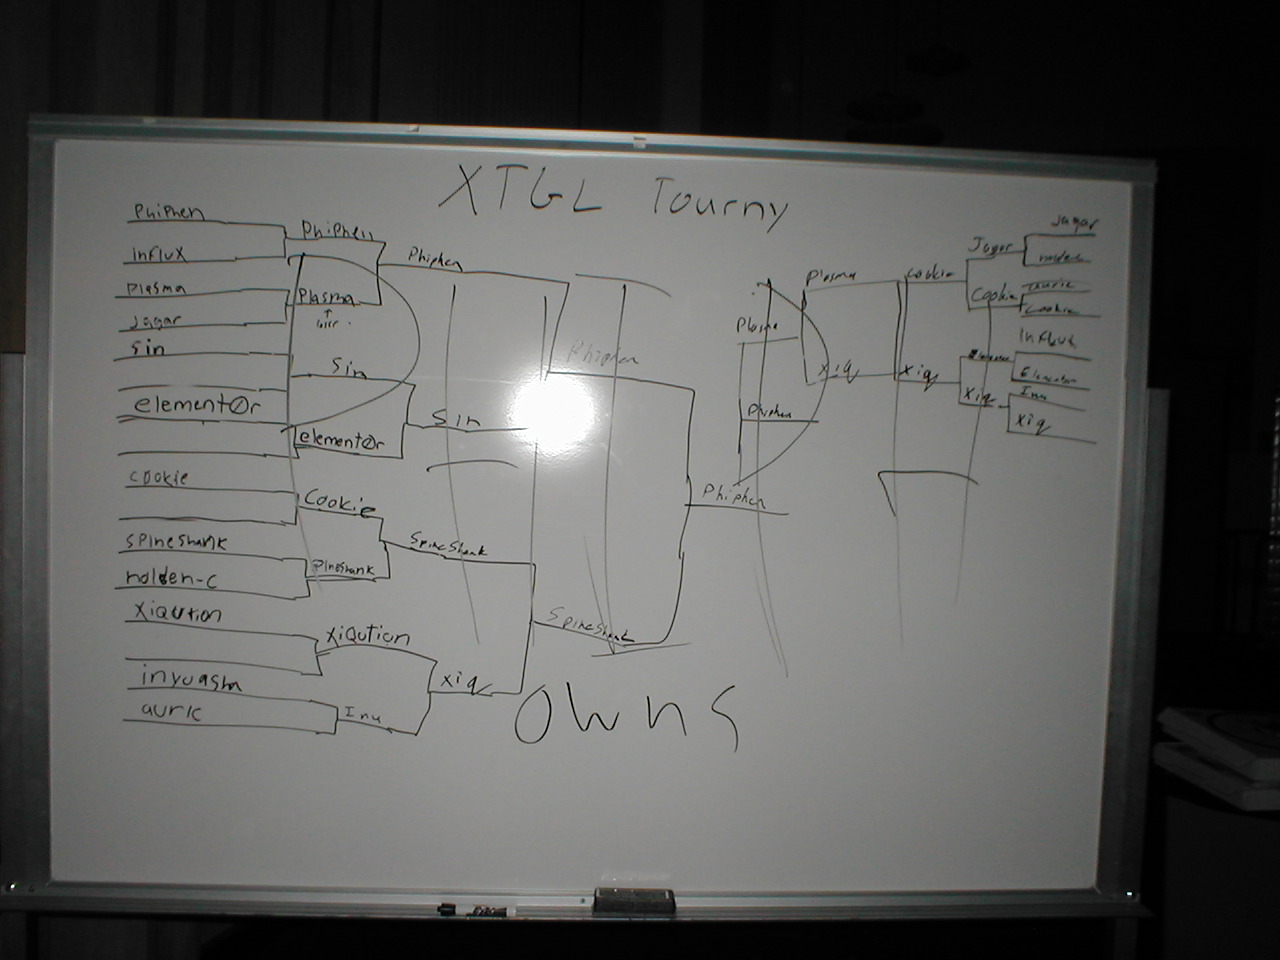 XTGL Tourny
Phiphen
influx
Plasma
Jagar
Sin
element0r
cookie
spineshank
holden-c
Xiqution
inyuasha
auric
Phiphen
Plasma
Sin
element0r
Cookie
pineshank
Xiqution
Inu
Phiphen
Sin
SpineShank
Xiq
Phiphen
SpineShank
Phiphen
Plasma
Phiphen
Plasma
Xiq
Cookie
Xiq
Jagar
Cookie
Xiq
Jagar
holden
Cookie
Influx
Inu
Xiq
owns